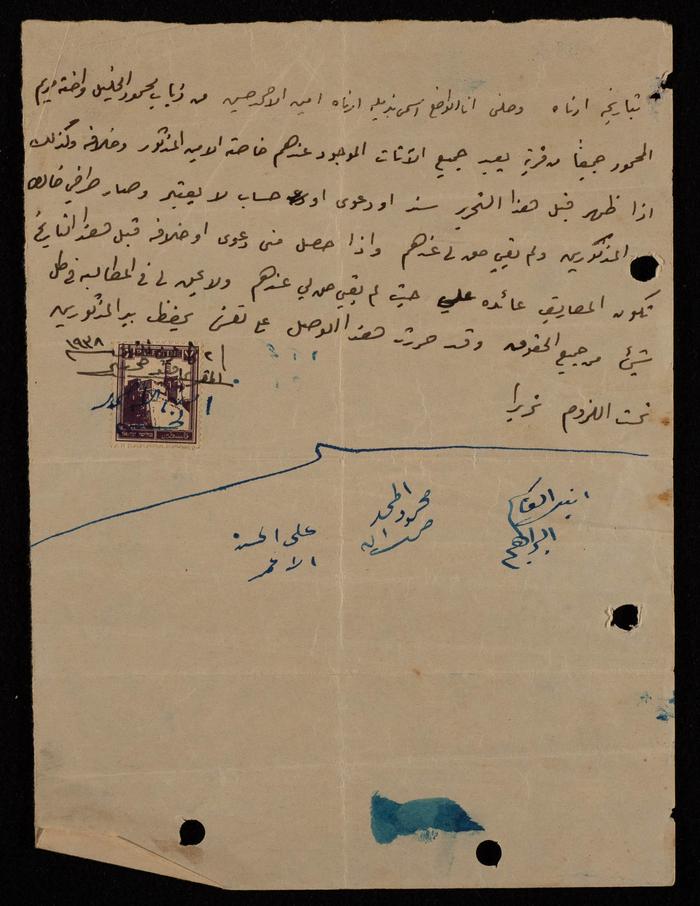 بتاريخه ادناه وصلني انا الواضع اسمي بذيله ادناه امين الاحمد حسين من ذياب محمود الخليل واخته مريم
المحمود جميعا من قرية يعبد جميع الاثاث الموجود عندهم خاصة الامين المذكور وخلافه وكذلك
اذا ظهر قبل هذا التحرير سند او دعوى او حساب لا يعتبر وصار طرفي خالص
المذكورين ولم بقي حق لي عندهم واذا حصل مني دعوى او خلافه قبل هذا التاريخ
تكون المصاريف عائده علي حيث لم بقي حق لي عندهم ولا يحق لي في المطالبه في كل
شيئ من جميع الحقوق وقد حررت هذا الوصل على نفسي يحفظ بيد المذكورين
تحت اللزوم تحريرا
١٩٣٨
المقر
محمود المحمد
علي الحسن
الاحمد